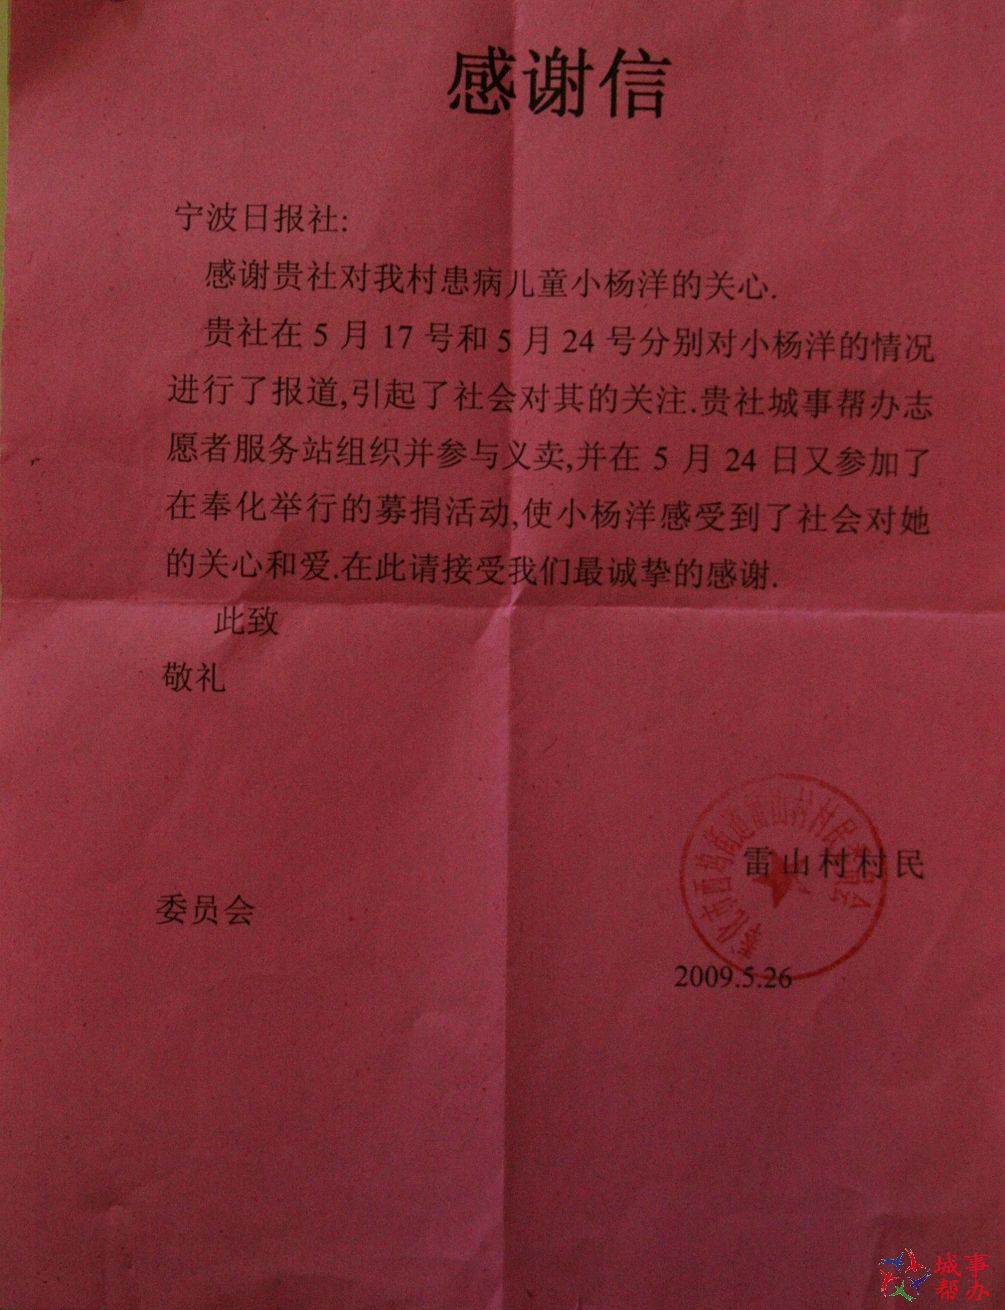 感谢信
宁波日报社:
感谢贵社对我村患病儿童小杨洋的关心.
贵社在 5 月 17 号和 5 月 24 号分别对小杨洋的情况
进行了报道,引起了社会对其的关注.贵社城事帮办志
愿者服务站组织并参与义卖,并在 5 月 24 日又参加了
在奉化举行的募捐活动,使小杨洋感受到了社会对她
的关心和爱.在此请接受我们最诚挚的感谢.
此致
敬礼
奉化市西坞街道雷山村村民委员会
雷山村村民
委员会
2009.5.26
城事
帮办